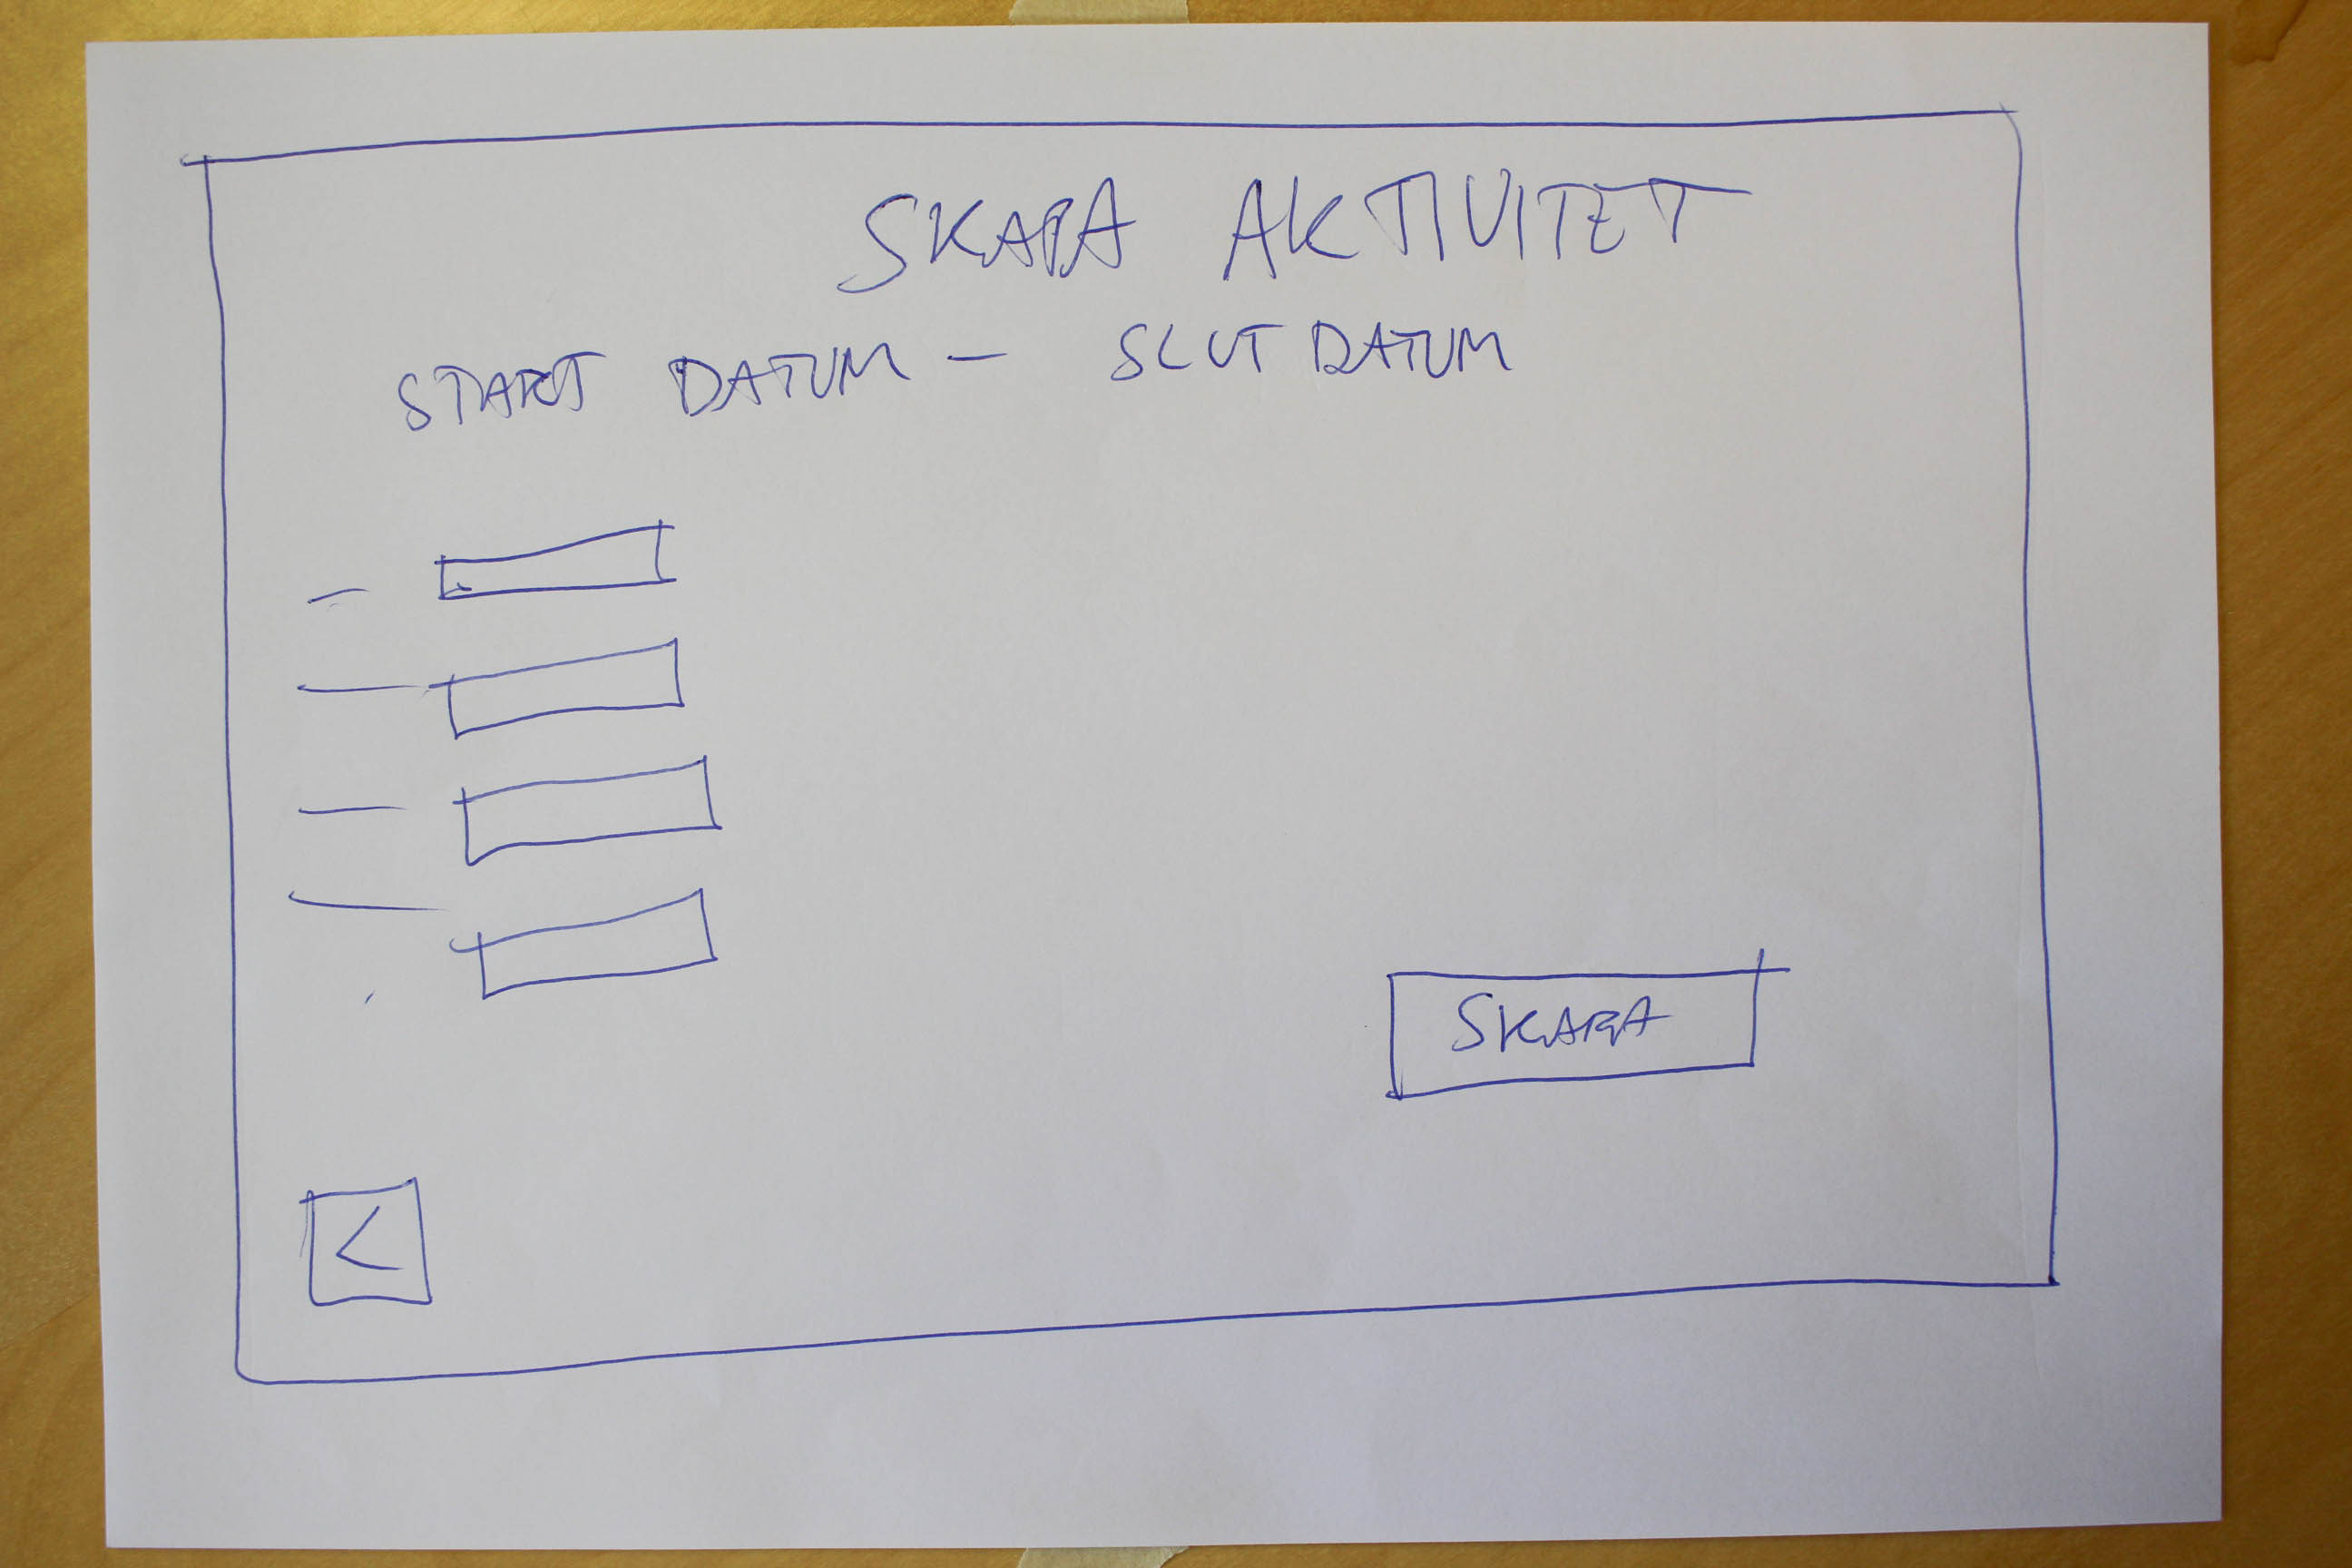 SKAPA AKTIVITET
START DATUM - SLUT DATUM
SKAPA
<